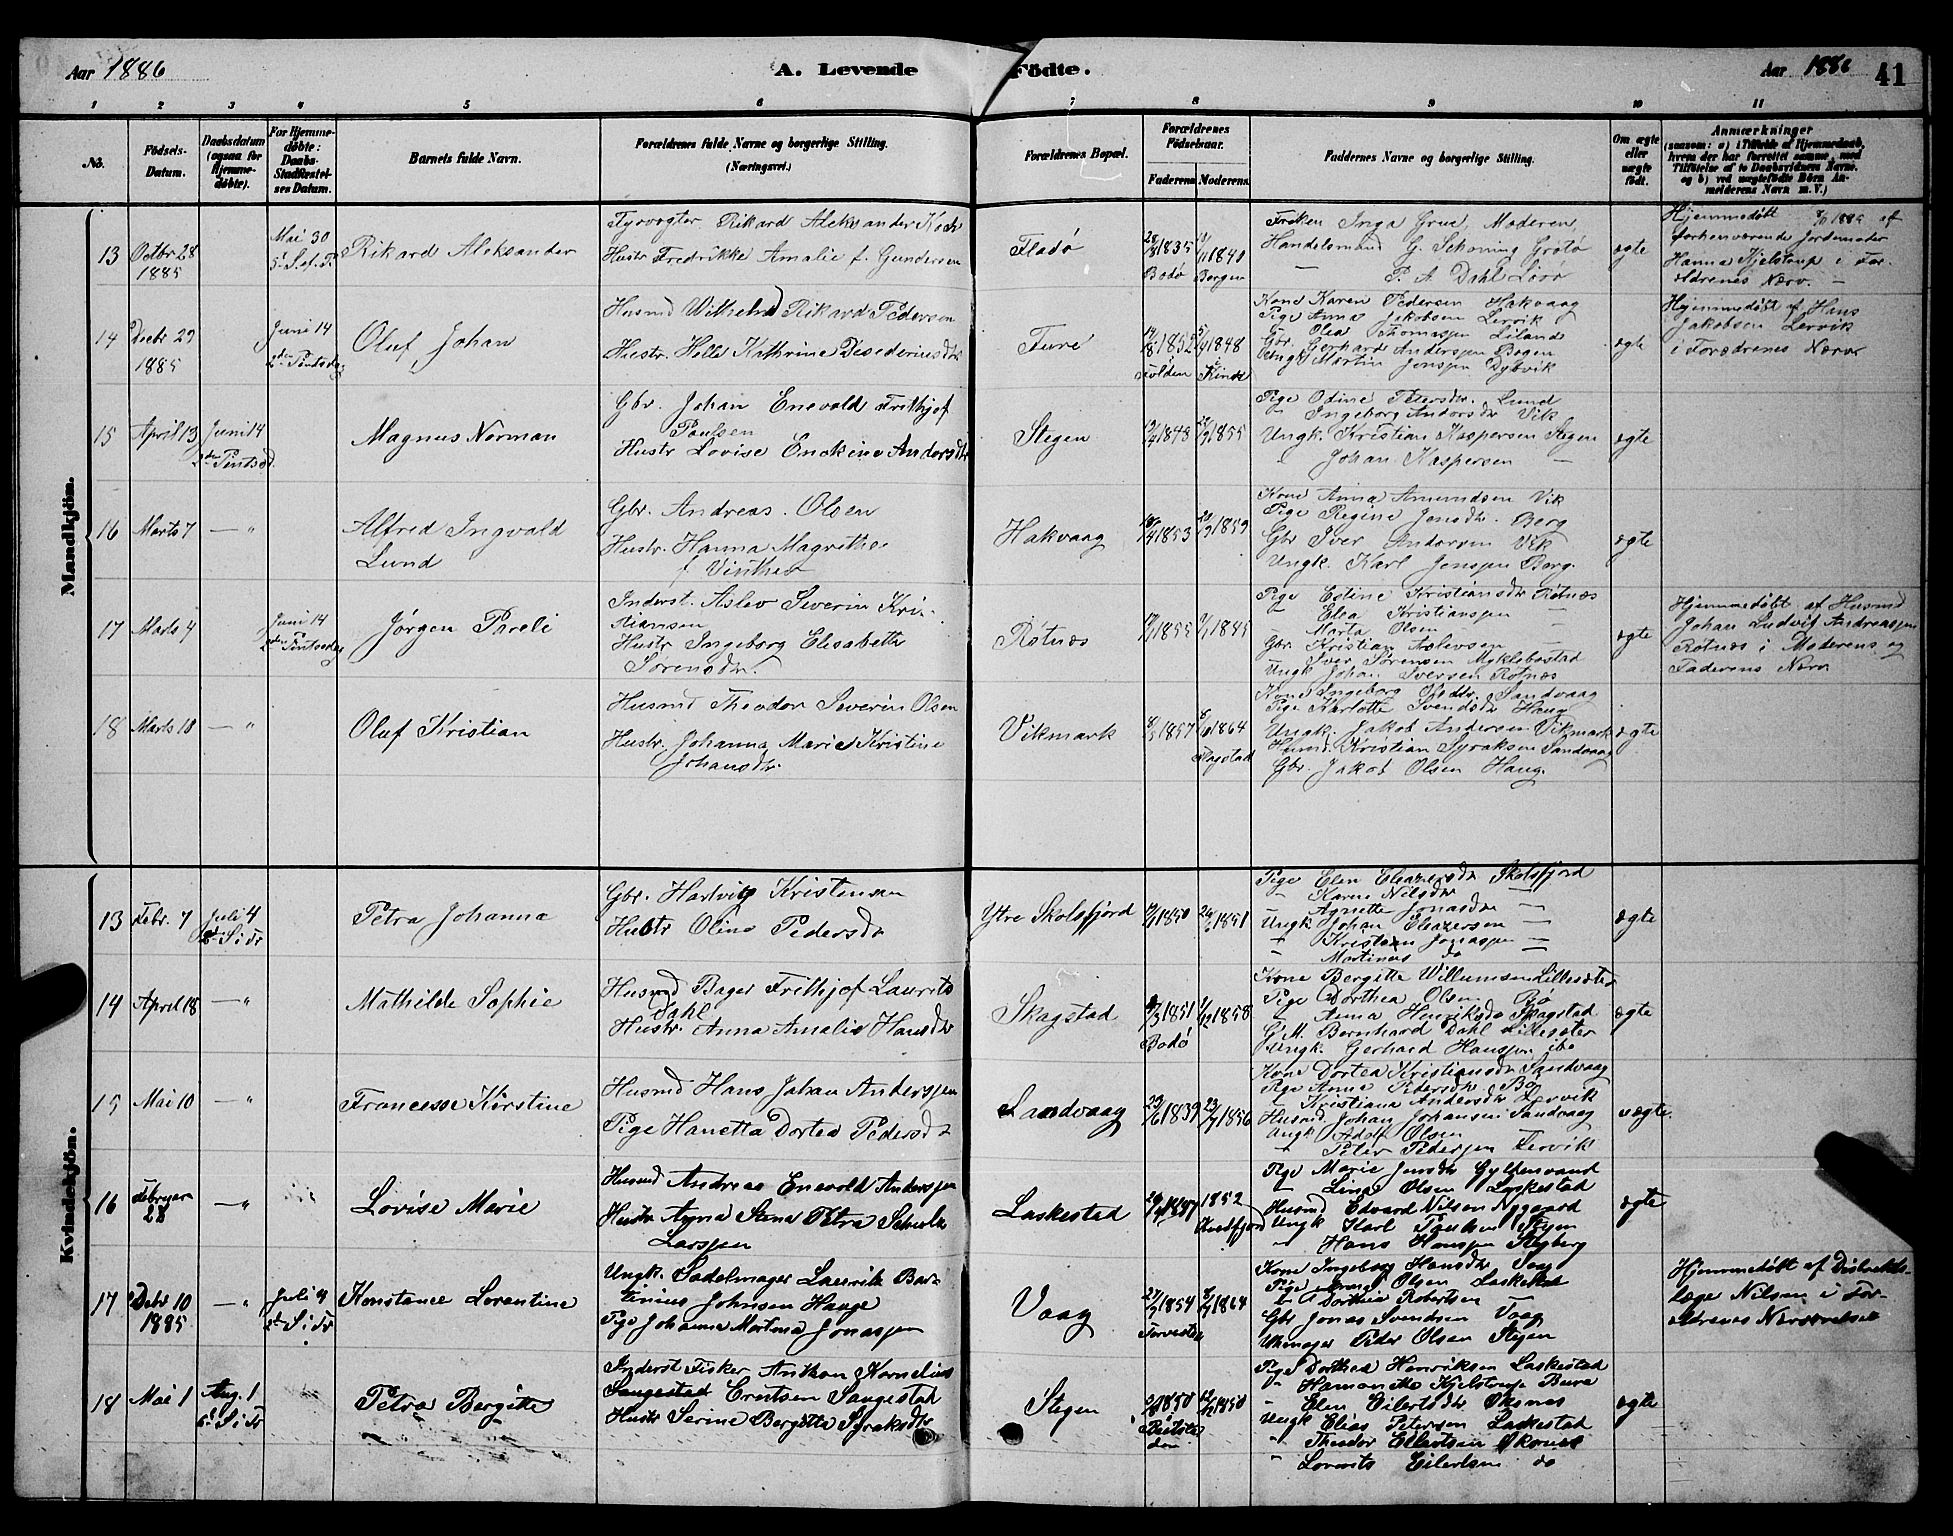 Aar 1886
A. Levende Födte.
Aar 1886
41
1 2 3 4 5 6 7 8 9 10 11
No.
Födsels-
Datum.
Daabsdatum
(ogsaa for
Hjemme-
döbte).
For Hjemme-
döbte:
Daabs-
Stadfæstel-
ses Datum.
Barnets fulde Navn.
Forældrenes fulde Navne og borgerlige Stilling.
(Næringsvei.)
Forældrenes Bopæl.
Forældrenes
Födselsaar.
Faderens
Moderens
Faddernes Navne og borgerlige Stilling.
Om ægte
eller
uægte
födt.
Anmærkninger
(saasom: a) i Tilfælde af Hjemmedaab,
hvem der har forrettet samme, med
Tilföielse af to Daabsvidners Navne,
og b) ved uægtefödte Börn An-
melderens Navn m. V.)
Mandkjön.
13
Octbr 28
1885
Mai 30
Rikard Aleksander
Fyrvogter Rikard Aleksander Koch
Hustr Fredrikke Amalie f. Gundersen
Flodø
1835
Bodø
1840
Bergen
Frøken Inga Grue, Moderen,
Handelsmand G. Schøning Grøtø
P. A. Dahl Løvø
ægte
Hjemmedøbt af
forhenværende Jordemoder
Hanna Kjelstrup i For-
ældrenes Nærv. —
14
Decbr 29
1885
Juni 14
2den Pintsedag
Oluf Johan
Husmd Wilhelm Rikard Pedersen
Hustr. Helle Kathrine Desideriusdtr
Fure
1852
Folden
1848
Kone Karen Pedersen Hakvaag
Pige Anna Jakobsen Lervik
Gbr. Olea Thomassen Liland
Gerhard Anderssen Bogen
Ungk Martin Jenssen Dybvik
ægte
Hjemmedøbt af Hans
Jakobsen Lervik
i Forædrenes Nærv
15
April 13
Juni 14
2den Pintsed.
Magnus Norman
Gbr. Johan Enevold Frithjof
Paulsen
Hustr Lovise Enckine Andersdtr
Stegen
1848
1855
Pige Odine Petersdtr. Lund
" Ingeborg Andersdtr Vik
Ungk. Kristian Kaspersen Stegen
" Johan Kaspersen —
ægte
16
Marts 7
— "
Alfred Ingvald
Lund
Gbr. Andreas Olsen
Hustr. Hanna Magrethe
f. Vinther
Hakvaag
1853
1859
Kone Anna Amundsen Vik
Pige Regine Jensdtr. Berg
Gbr Iver Andersen Vik
Ungk. Karl Jenssen Berg.
ægte
17
Marts 4
Juni 14
2den Pintsedag
Jørgen Pareli
Inderst. Aslev Severin Kris-
tiansen
Hustr Ingeborg Elisabeth
Sørensdtr.
Røtnæs
1855
1845
Pige Estine Kristiansdtr Røtnæs
" Elea Kristianssen —
" Marta Olsen —
Gbr Kristian Aslevsen
" Iver Sørensen Myklebostad
Ungk Johan Iversen Røtnæs
ægte
Hjemmedøbt af Husmd
Johan Ludvig Andreassen
Røtnæs i Moderens og
Faderens Nærv
18
Marts 10
— "
Oluf Kristian
Husmd Theodor Severin Olsen
Hustr. Johanna Marie Kristine
Johansdtr.
Vikmark
1857
1864
Skagstad
Kone Ingeborg Sandvaag
Pige Karlotte Svendsdtr Haug
Ungk. Jakob Andersen Vikmark
Husmd. Kristian Syraksen Sandvaag
Gbr. Jakob Olsen Haug.
ægte
Kvindekjön.
13
Febr. 7
Juli 4
Petra Johanna
Gbr. Hartvig Kristensen
Hustr Oline Pedersdtr
Ytre Skolsfjord
1850
1851
Pige Elen Eleazersdtr Skolsfjord
" Karen Nilsdtr —
" Agnette Jonasdtr —
Ungk Johan Eleazersen —
" Kristian Jonassen —
" Martinus do —
ægte
14
April 18
— "
Mathilde Sophie
Husmd Bager Frithjof Laurits
Dahl
Hustr. Anna Amalie Hansdtr
Skagstad
1851
Bodø
1858
Kone Bergitte Willumsen Lillesæter
Pige Dorthea Olsen Bø
" Anna Henriksdtr Skagstad
G.M. Bernhard Dahl Lillesæter
Ungk. Gerhard Hanssen ibd
ægte
15
Mai 10
— "
Francesse Kirstine
Husmd Hans Johan Anderssen
Pige Hanetta Dortea Pedersdtr
Sandvaag
1839
1856
Kone Dortea Kristiansdtr Sandvaag
Pige Anna Pedersdtr Bø
" Kristiana Andersdtr Lervik
Husmd. Johan Johansen Sandvaag
Ungk Adolf Olsen —
" Peter Pedersen Lervik
uægte
16
Februar
28
— "
Lovise Marie
Husmd Andreas Enevold Anderssen
Hustr Anna Stena Petra Schults
Larssen
Laskestad
1847
1852
Pige Marie Jensdtr Gyltensvand
" Lina Olsen Laskestad
Husmd Edvard Nilsen Nygaard
Ungk Karl Paulsen Stegen
" Hans Hanssen Stegberg
ægte
17
Decbr 10
1885
— "
Juli 4
Konstance Lorentine
Ungk. Sadelmager Laurits Bar-
tinius Johnsen Hauge
Pige Johanna Martina Jonassen
Vaag
1854
1864
Kone Ingeborg Hansdtr Vaag
Pige Olsen Laskestad
" Dorthea Robertsen —
Gbr Jonas Svendsen Vaag
Uhrmager Peder Olsen Stegen
Hjemmedøbt af Distrikts-
læge Nilsen i For-
ældrenes Nærværelse
18
Mai 1
Aug. 1
Petra Bergitte
Inderst Fisker Anthon Kornelius
Sangestad Erntsen Sangestad
Hustr Serine Bergitte Syraksdtr
Stegen
1850
1850
Pige Dorthea Henriksen Laskestad
" Kjelstrup Bure
" Elen Eilertsdtr Øksnes
Ungk Elias Petersen Laskestad
" Theodor Eilertsen Øksnes
" Lovrits Eilertsen do
ægte